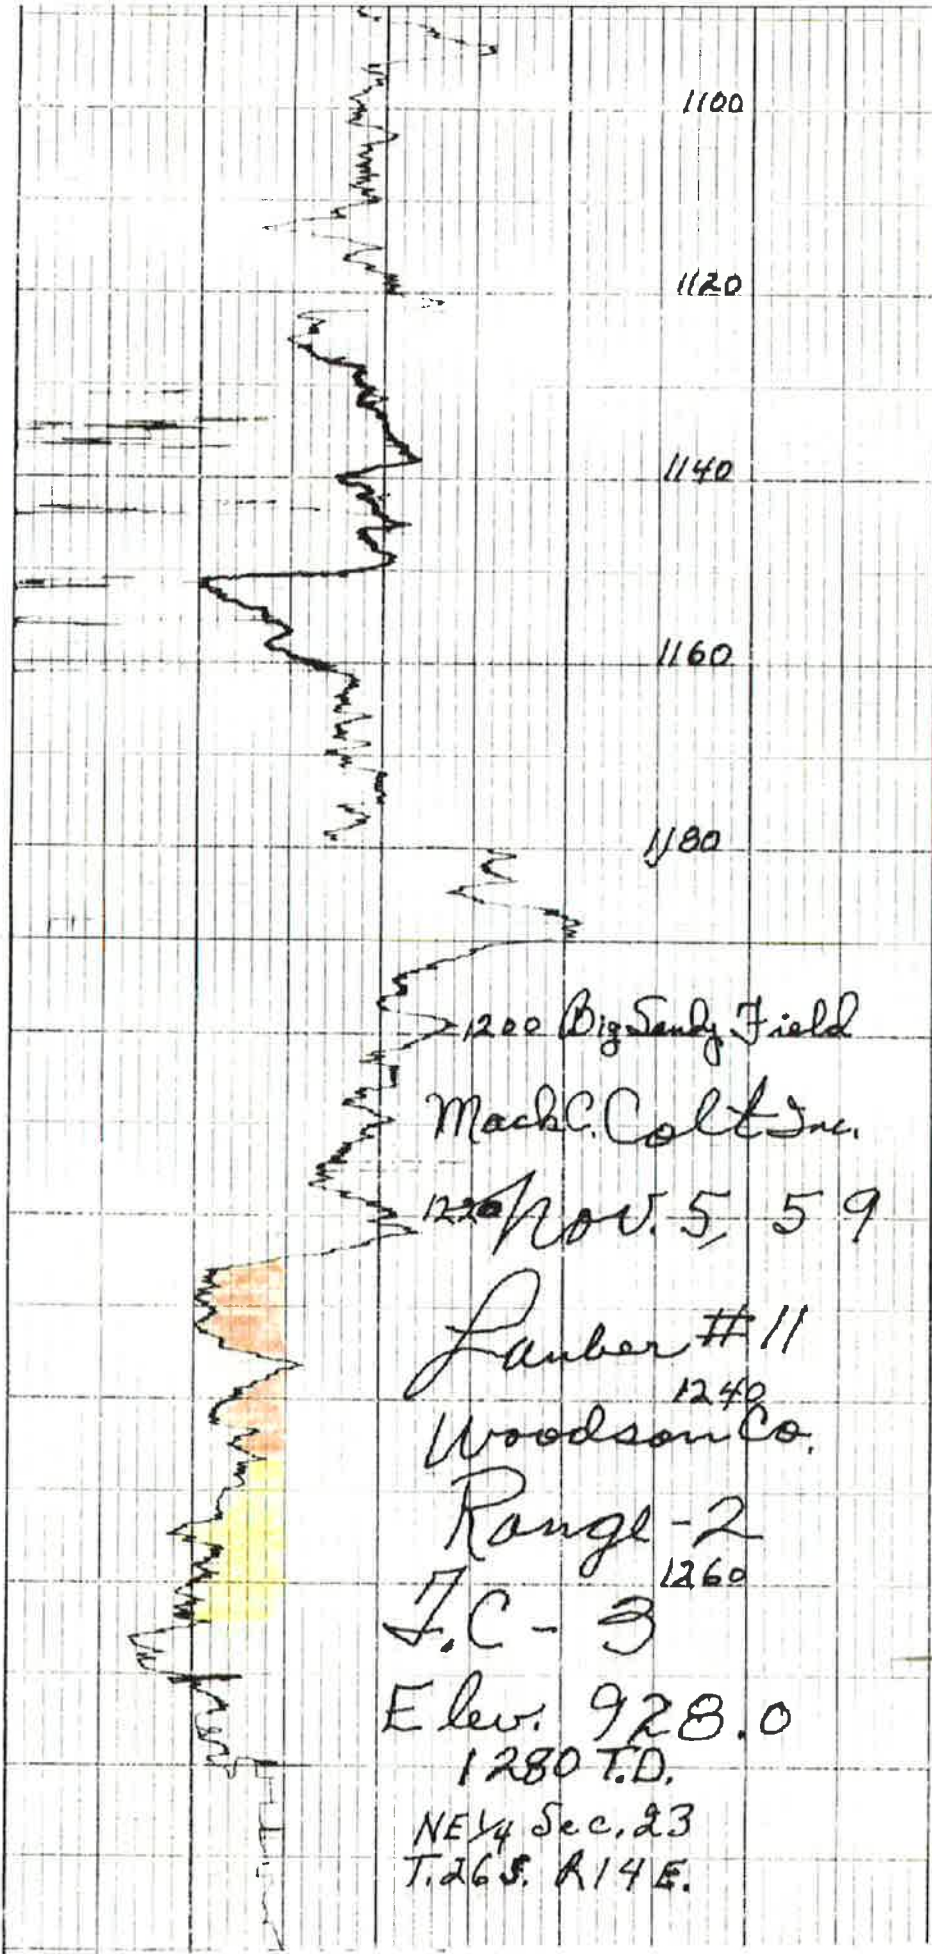 1100
1120
1140
1160
1180
1200 Big Sandy Field
Mack C. Colt Inc.
1220 Nov. 5, 59
Lauber #11
1240
Woodson Co.
Range - 2
1260
T.C - 3
Elev. 928.0
1280 T.D.
NE 1/4 Sec. 23
T.26 S. R14 E.